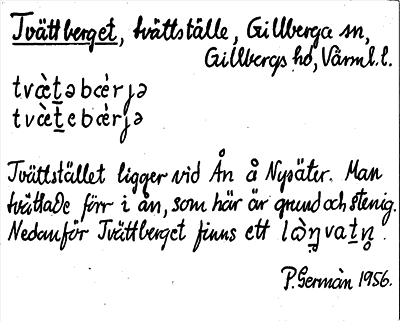 Tvättberget, tvättställe, Gillberga sn,
Gillbergs hd, Värml. l.
tvæ̀t̠əbæ̀rjə
tvæ̀t̠ebæ̀rjə
Tvättstället ligger vid Ån å Nysäter. Man
tvättade förr i ån, som här är grund och stenig.
Nedanför Tvättberget finns ett
P. Germàn 1956.